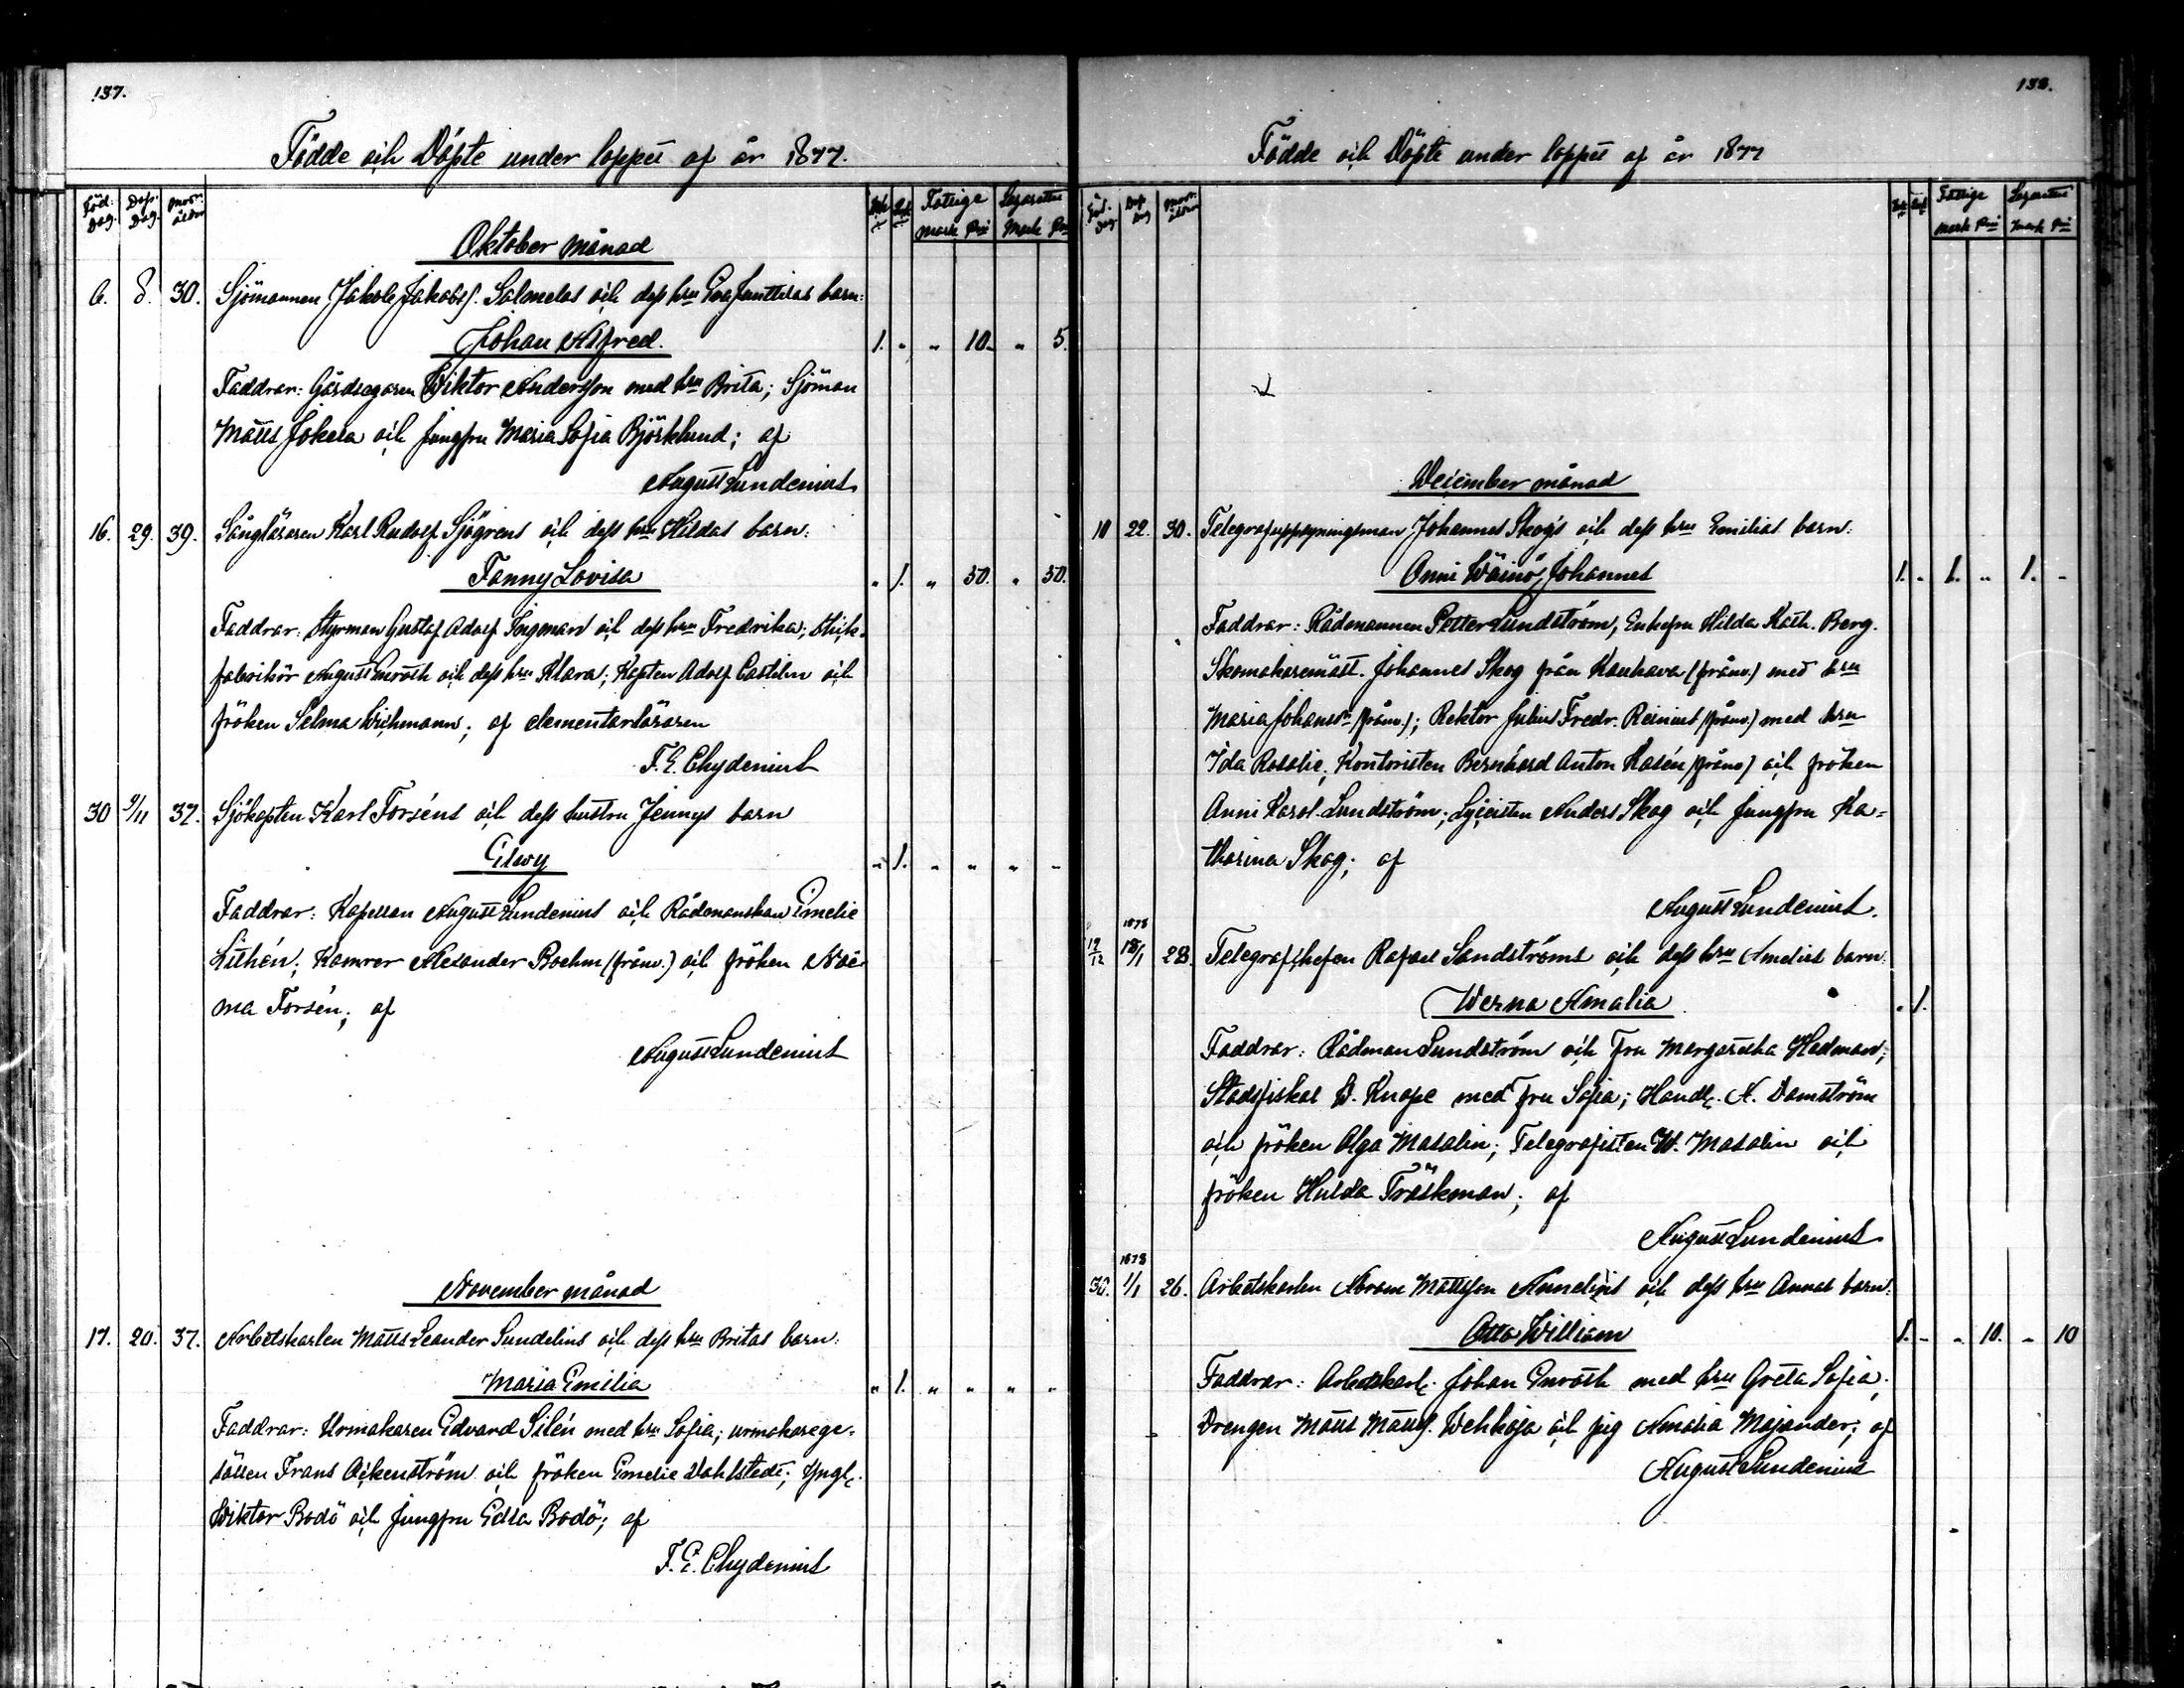 137.
Födde och Döpte under loppet af år 1877.
Föd. Dag. Döp. Dag. Mors ålder Fattige Lazarettet
Mark Pni Mark Pni
Oktober månad
6. 8. 30. Sjömannen Jakob Jakobs. Salmelas och dess hru Eva barn:
Johan Alfred. 1. " " 10. " 5.
Faddrar: Gårdsegaren Wiktor Andersson med hru Brita; Sjöman
Matts Jokela och jungfru Maria Sofia Björklund; af
August Lundenius
16. 29. 39. Sångläraren Karl Rudolf Sjögrens och dess hru Hildas barn:
Fanny Lovisa " 1. " 50. " 50.
Faddrar: Styrman Gustaf Adolf Ingman och dess hru Fredrika;
fabrikör August Enroth och dess hru Klara; Kapten Adolf Castilin och
fröken Selma Wichmann; af elementarläraren
F. E. Chydenius
30 9/11 37. Sjökapten Karl Forséns och dess hustru Jennys barn
Elwy " 1. " " " "
Faddrar: Kapellan August Lundenius och Rådmanskan Emelie
Lithén; Kamrer Alexander Boehm (frånv.) och fröken Noë-
ma Forsén; af
August Lundenius
November månad
17. 20. 37. Arbetskarlen Matts Leander Sundelins och dess hru Britas barn:
Maria Emilia " 1. " " " "
Faddrar: Urmakaren Edvard Silén med hru Sofia; urmakarege-
sällen Frans Ackenström och fröken Emelie Dahlstedt; Yngl.
Wiktor Bodö och jungfru Edla Bodö; af
F. E. Chydenius
138.
Födde och Döpte under loppet af år 1877
Föd. Dag Döp. Dag Mors ålder Fattige Lazarettet
Mark Pni Mark Pni
December månad
10 22. 30. Telegrafuppsyningsman Johannes Skogs och dess hru Emilias barn:
Onni Wäinö Johannes 1. " 1. " 1. "
Faddrar: Rådmannen Petter Lundström, Enkefru Hilda Kath. Berg.
Skomakaremäst. Johannes Skog från Kauhava (frånv.) med hru
Maria Johansdr (frånv.); Rektor Julius Fredr. Reinius (frånv.) med hru
Ida Rosalie; Kontoristen Bernhard Anton Kasén (frånv) och fröken
Anni Karol. Lundström; Lyceisten Anders Skog och jungfru Ka-
tharina Skog; af
August Lundenius.
1878
19/12 18/1 28. Telegrafchefen Rafael Sandströms och dess hru Amelies barn:
Werna Amalia " 1.
Faddrar: Rådman Lundström och Fru Margaretha Hedman;
Stadsfiskal W. Knape med fru Sofia; Handl. A. Damström
och fröken Olga Masalin; Telegrafisten W. Masalin och
fröken Hulda Träskman; af
August Lundenius
1878
30. 1/1 26. Arbetskarlen Abram Mattsson Annelins och dess hru Annas barn:
Otto William 1. " " 10. " 10
Faddrar: Arbetskarl. Johan Enroth med hru Greta Sofia;
Drengen Matts Matts. Wehkoja och pig Amalia Majander; af
August Lundenius